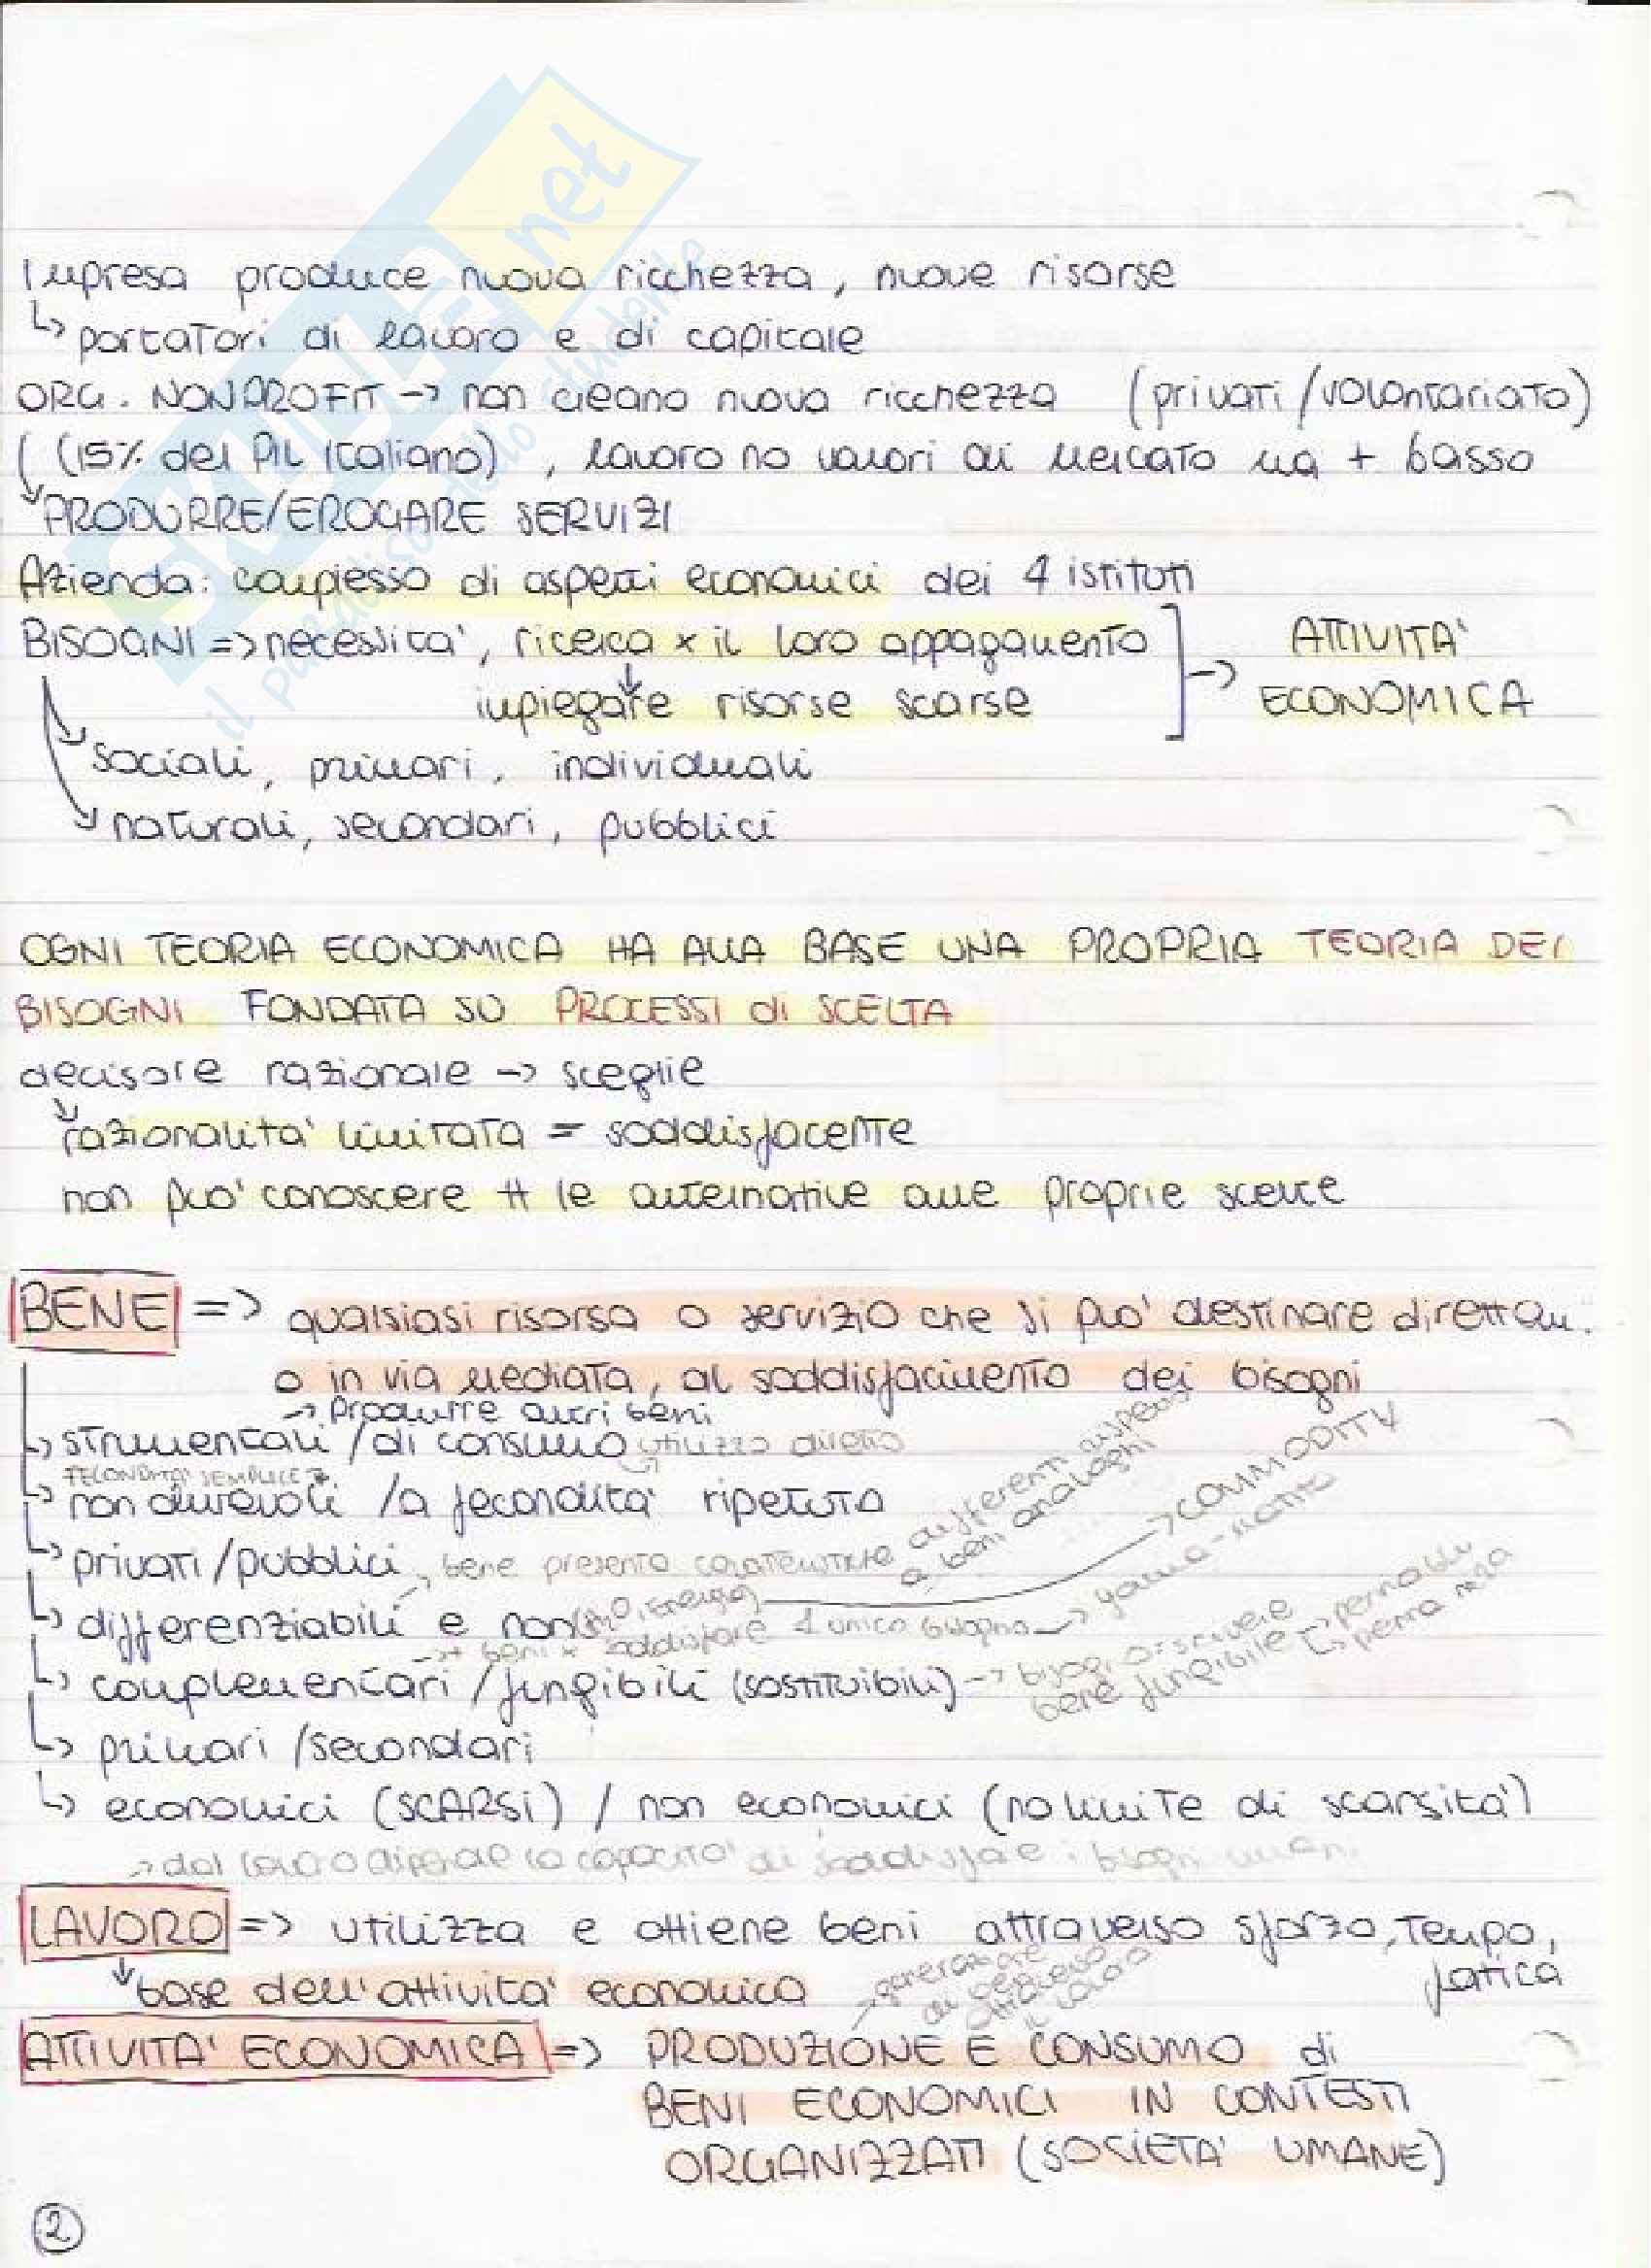 SKUOLA.net
il paradiso dello studente
Impresa produce nuova ricchezza, nuove risorse
↳ portatori di lavoro e di capitale
ORG. NONPROFIT → non creano nuova ricchezza (privati/volontariato)
(15% del PIL Italiano), lavoro no valori di mercato ma + basso
↘ PRODURRE/EROGARE SERVIZI
Azienda: complesso di aspetti economici dei 4 istituti
BISOGNI => necessita', ricerca x il loro appagamento ] → ATTIVITA'
impiegare risorse scarse ECONOMICA
sociali, primari, individuali
naturali, secondari, pubblici
OGNI TEORIA ECONOMICA HA ALLA BASE UNA PROPRIA TEORIA DEI
BISOGNI FONDATA SU PROCESSI di SCELTA
decisore razionale → sceglie
razionalita' limitata = soddisfacente
non puo' conoscere tt le alternative alle proprie scelte
BENE => qualsiasi risorsa o servizio che si puo' destinare direttam.
o in via mediata, al soddisfacimento dei bisogni
→ produrre altri beni
↳ strumentali / di consumo utilizzo diretto
FECONDITA' SEMPLICE
↳ non durevoli / a fecondita' ripetuta
↳ privati/pubblici, bene presenta caratteristiche differenti rispetto
a beni analoghi
↳ differenziabili e non (H2O, Energia) → COMMODITY
→ + beni x soddisfare 1 unico bisogno → gamma-
↳ complementari / fungibili (sostituibili) → bisogno scrivere
bene fungibile → penna blu
↳ penna nera
↳ primari / secondari
↳ economici (SCARSI) / non economici (no limite di scarsita')
→ dal loro dipende la capacita' di soddisfare i bisogni umani
LAVORO => utilizza e ottiene beni attraverso sforzo, tempo,
fatica
↓ base dell'attivita' economica
→ generazione
di
attraverso
il lavoro
ATTIVITA' ECONOMICA => PRODUZIONE E CONSUMO di
BENI ECONOMICI IN CONTESTI
ORGANIZZATI (SOCIETA' UMANE)
2